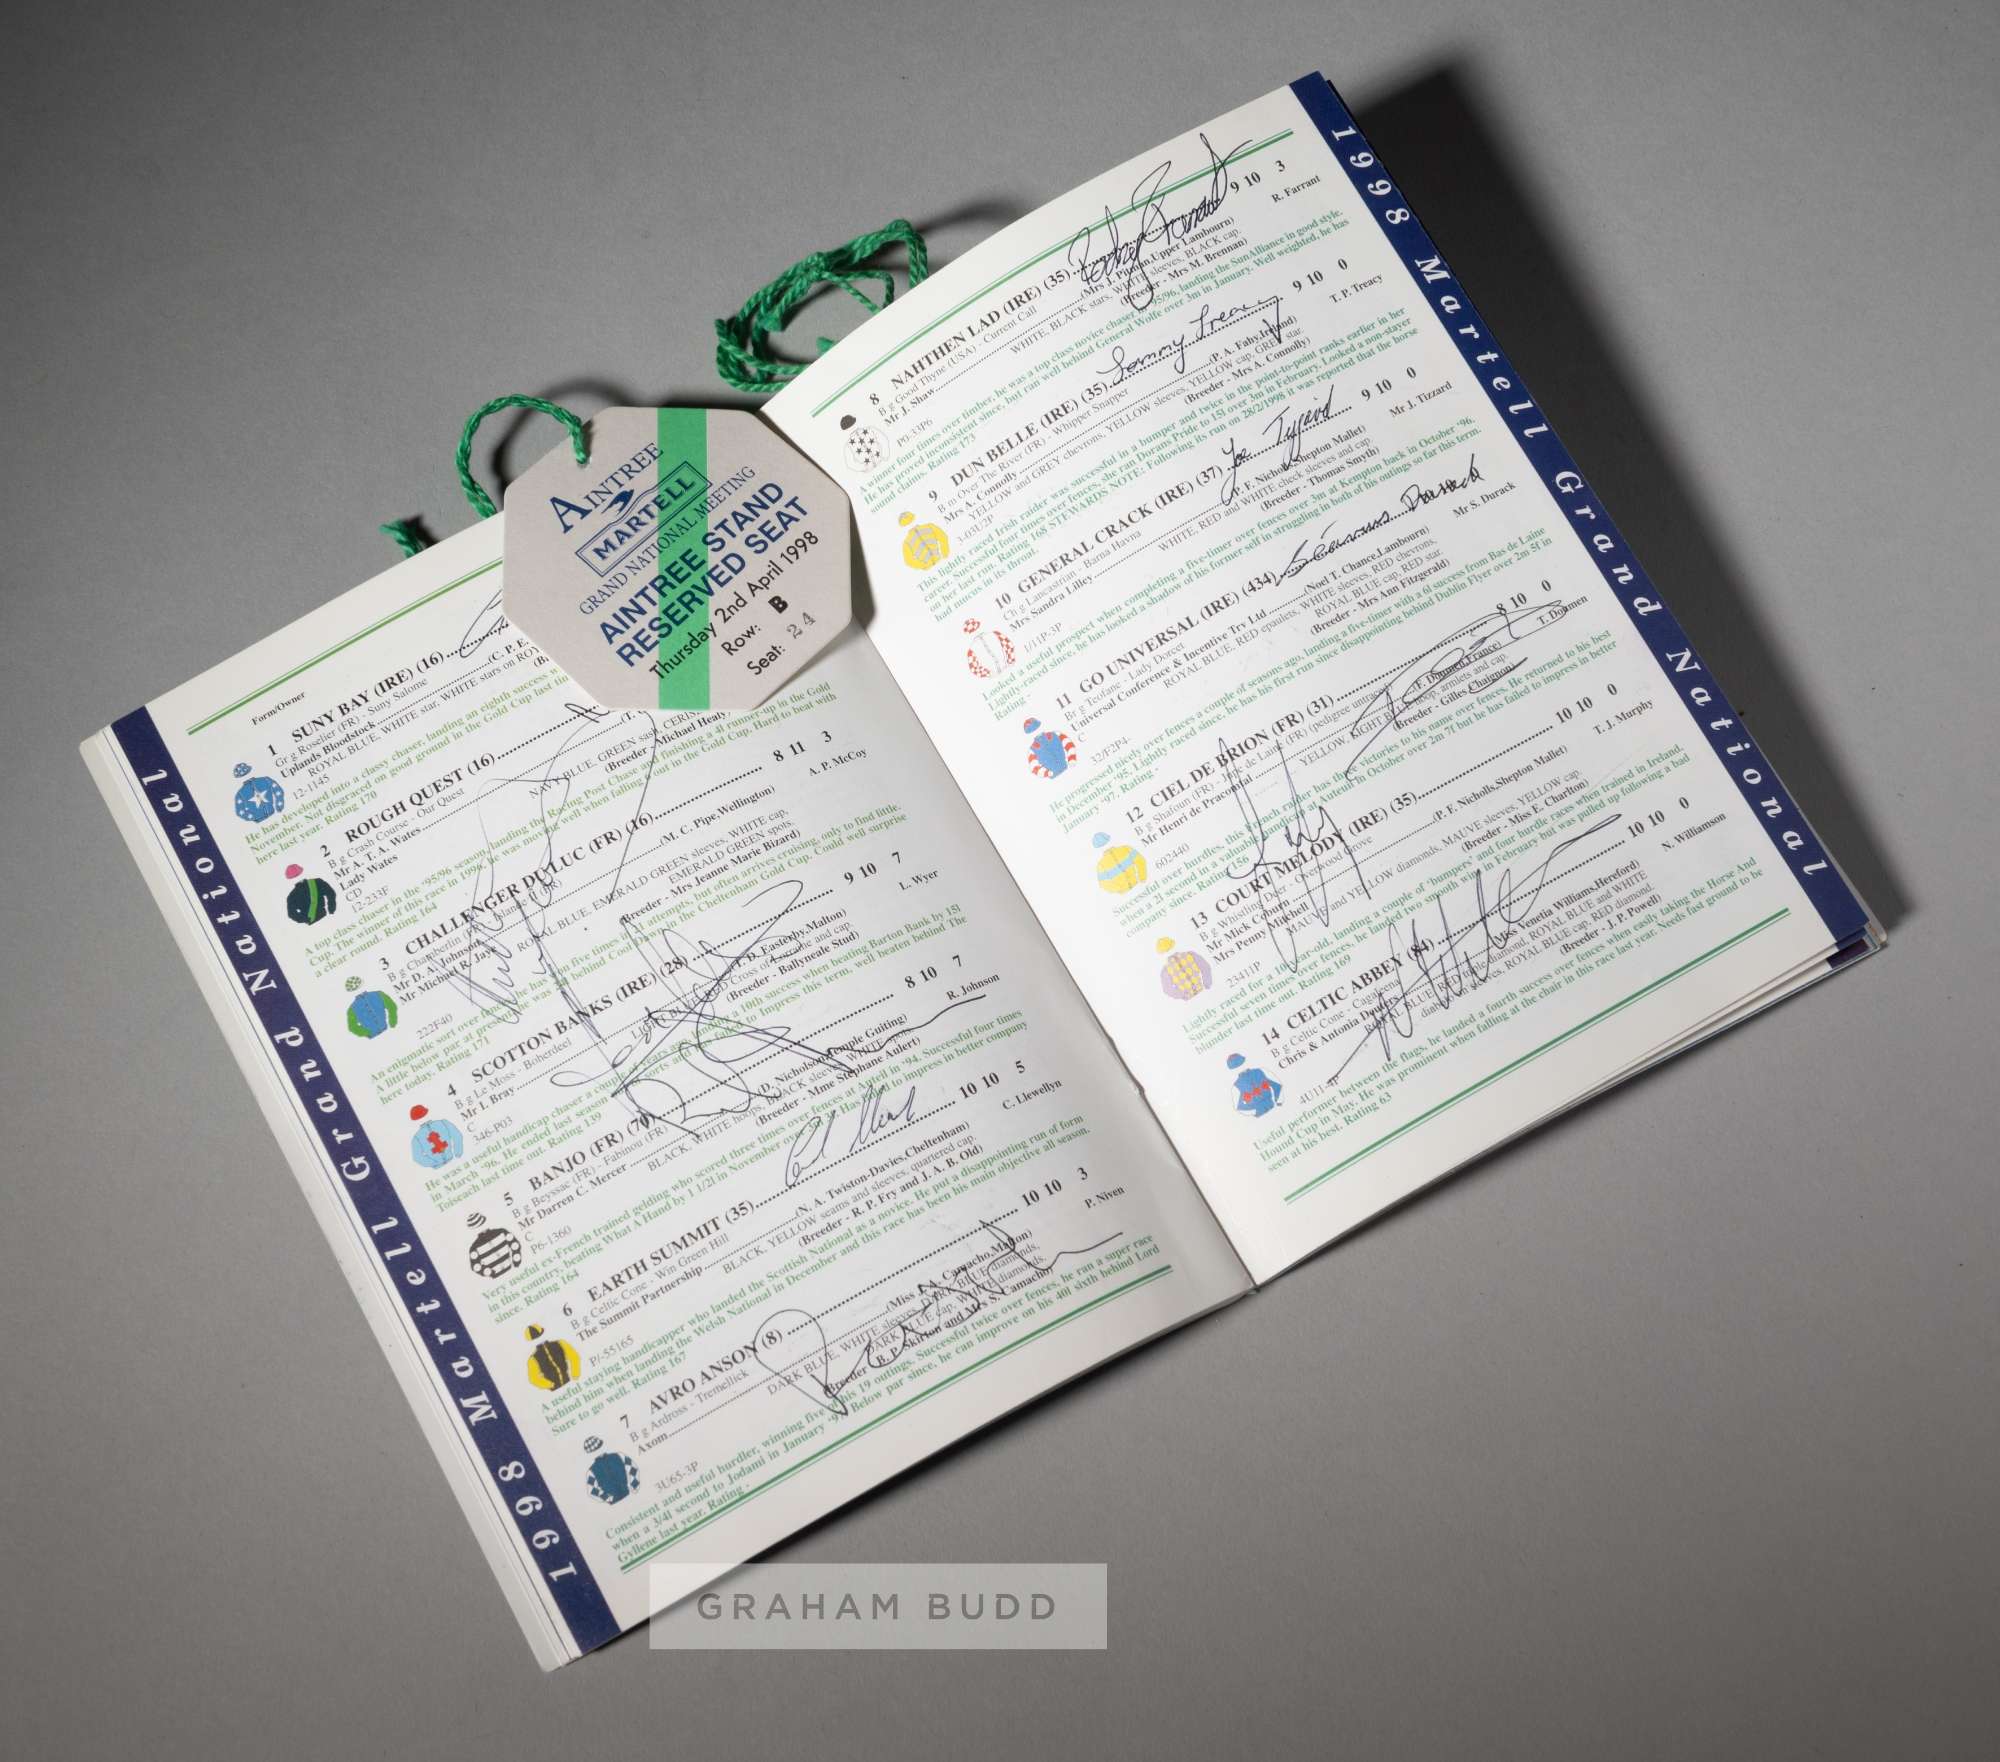 1998 Martell Grand National
Form/Owner
1 SUNY BAY (IRE) (16)
Gr g Roselier (FR) - Suny Salome
Uplands Bloodstock (C. P. E.
ROYAL BLUE, WHITE star, WHITE stars on
12-1145
He has developed into a classy chaser, landing an eighth success
November. Not disgraced on good ground in the Gold Cup last
here last year. Rating 170
2 ROUGH QUEST (16)
B g Crash Course - Our Quest
Mr A. T. A. Wates
Lady Wates
NAVY BLUE, GREEN sash,
(Breeder - Michael Healy)
CD
12-233F
A top class chaser in the '95/96 season, landing the Racing Post Chase and finishing a 4l runner-up in the Gold
Cup. The winner of this race in 1996, he was moving well when falling in the Gold Cup. Hard to beat with
a clear round. Rating 164
3 CHALLENGER DU LUC (FR) (16) 8 11 3
B g Chamberlin (FR)
Mr D. A. Johnson (M. C. Pipe,Wellington)
Mr Michael R. Jaye A. P. McCoy
ROYAL BLUE, EMERALD GREEN sleeves, WHITE cap,
EMERALD GREEN spots.
(Breeder - Mrs Jeanne Marie Bizard)
222F40
An enigmatic sort over fences, he has won five times in 21 attempts, but often arrives cruising, only to find little.
A little below par at present, he was behind Cool Dawn in the Cheltenham Gold Cup. Could well surprise
here today. Rating 171
4 SCOTTON BANKS (IRE) (28) 9 10 7
B g Le Moss - Boherdeel
Mr I. Bray (T. D. Easterby,Malton) L. Wyer
LIGHT BLUE, RED Cross of Lorraine and cap.
(Breeder - Ballyneale Stud)
C
346-P03
He was a useful handicap chaser a couple of years ago, landing a 10th success when beating Barton Bank by 15l
in March '96. He ended last season
Toiseach last time out. Rating 139
5 BANJO (FR) (70) 8 10 7
B g Beyssac (FR) - Fabinou (FR)
Mr Darren C. Mercer (D. Nicholson,Temple Guiting) R. Johnson
BLACK, WHITE hoops, BLACK sleeves, WHITE spots.
(Breeder - Mme Stephane Aulert)
C
P6-1360
Very useful ex-French trained gelding who scored three times over fences at Auteil in '94. Successful four times
in this country, beating What A Hand by 1 1/2l in November over 3m. Has failed to impress in better company
since. Rating 164
6 EARTH SUMMIT (35) Carl Llewellyn 10 10 5
B g Celtic Cone - Win Green Hill
The Summit Partnership (N. A. Twiston-Davies,Cheltenham) C. Llewellyn
BLACK, YELLOW seams and sleeves, quartered cap.
(Breeder - R. P. Fry and J. A. B. Old)
P/-55165
A useful staying handicapper who landed the Scottish National as a novice. He put a disappointing run of form
behind him when landing the Welsh National in December and this race has been his main objective all season.
Sure to go well. Rating 167
7 AVRO ANSON (8) 10 10 3
B g Ardross - Tremellick
Axom (Miss J. A. Camacho,Malton) P. Niven
DARK BLUE, WHITE sleeves, DARK BLUE diamonds,
DARK BLUE cap, WHITE diamonds.
(Breeder - B. P. Skirton and Mrs S. Camacho)
3U65-3P
Consistent and useful hurdler, winning five of his 19 outings. Successful twice over fences, he ran a super race
when a 3/4l second to Jodami in January '97. Below par since, he can improve on his 40l sixth behind Lord
Gyllene last year. Rating -
AINTREE
MARTELL
GRAND NATIONAL MEETING
AINTREE STAND
RESERVED SEAT
Thursday 2nd April 1998
Row: B
Seat: 24
8 NAHTHEN LAD (IRE) (35) Rodney Farrant 9 10 3
B g Good Thyne (USA) - Current Call
Mr J. Shaw (Mrs J. Pitman,Upper Lambourn) R. Farrant
WHITE, BLACK stars, WHITE sleeves, BLACK cap.
(Breeder - Mrs M. Brennan)
P0-33P6
A winner four times over timber, he was a top class novice chaser in '95/96, landing the SunAlliance in good style.
He has proved inconsistent since, but ran well behind General Wolfe over 3m in January. Well weighted, he has
sound claims. Rating 173
9 DUN BELLE (IRE) (35) Tommy Treacy 9 10 0
B m Over The River (FR) - Whipper Snapper
Mrs A. Connolly (P. A. Fahy,Ireland) T. P. Treacy
YELLOW and GREY chevrons, YELLOW sleeves, YELLOW cap, GREY star.
(Breeder - Mrs A. Connolly)
3-03U2P
This lightly raced Irish raider was successful in a bumper and twice in the point-to-point ranks earlier in her
career. Successful four times over fences, she ran Dorans Pride to 15l over 3m in February. Looked a non-stayer
on her last run. Rating 168 STEWARDS NOTE: Following its run on 28/2/1998 it was reported that the horse
had mucus in its throat.
10 GENERAL CRACK (IRE) (37) Joe Tizzard 9 10 0
Ch g Lancastrian - Barna Havna
Mrs Sandra Lilley (P. F. Nicholls,Shepton Mallet) Mr J. Tizzard
WHITE, RED and WHITE check sleeves and cap.
(Breeder - Thomas Smyth)
1/11P-3P
Looked a useful prospect when completing a five-timer over fences over 3m at Kempton back in October '96.
Lightly-raced since, he has looked a shadow of his former self in struggling in both of his outings so far this term.
Rating -
11 GO UNIVERSAL (IRE) (434) Seamus Durack
Br g Teofane - Lady Dorcet
Universal Conference & Incentive Try Ltd (Noel T. Chance,Lambourn) Mr S. Durack
ROYAL BLUE, RED epaulets, WHITE sleeves, RED chevrons,
ROYAL BLUE cap, RED star.
(Breeder - Mrs Ann Fitzgerald)
C
32/F2P4-
He progressed nicely over fences a couple of seasons ago, landing a five-timer with a 6l success from Bas de Laine
in December '95. Lightly raced since, he has his first run since disappointing behind Dublin Flyer over 2m 5f in
January '97. Rating -
12 CIEL DE BRION (FR) (31) 8 10 0
B g Shafoun (FR) - Inès de Laine (FR) (pedigree unraced)
Mr Henri de Pracomtal (F. Doumen,France) T. Doumen
YELLOW, LIGHT BLUE hoop, armlets and cap.
(Breeder - Gilles Chaignon)
602440
Successful over hurdles, this French raider has three victories to his name over fences. He returned to his best
when a 2l second in a valuable handicap at Auteuil in October over 2m 7f but he has failed to impress in better
company since. Rating 156
13 COURT MELODY (IRE) (35) 10 10 0
B g Whistling Deer - Overwood Grove
Mr Mick Coburn (P. F. Nicholls,Shepton Mallet) T. J. Murphy
Mrs Penny Mitchell
MAUVE and YELLOW diamonds, MAUVE sleeves, YELLOW cap.
(Breeder - Miss E. Charlton)
23411P
Lightly raced for a 10-year-old, landing a couple of 'bumpers' and four hurdle races when trained in Ireland.
Successful seven times over fences, he landed two south wins in February but was pulled up following a bad
blunder last time out. Rating 169
14 CELTIC ABBEY (84) 10 10 0
B g Celtic Cone - Cagaleena
Chris & Antonia Deuters (Miss Venetia Williams,Hereford) N. Williamson
ROYAL BLUE, RED triple diamond, ROYAL BLUE and WHITE
diabolo sleeves, ROYAL BLUE cap, RED diamond.
(Breeder - J. P. Powell)
4U11-4P
Useful performer between the flags, he landed a fourth success over fences when easily taking the Horse And
Hound Cup in May. He was prominent when falling at the chair in this race last year. Needs fast ground to be
seen at his best. Rating 63
1998 Martell Grand National
GRAHAM BUDD